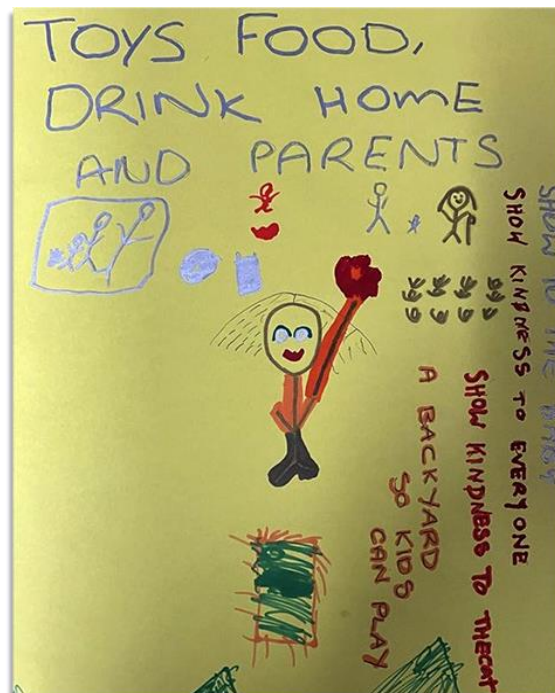 TOYS FOOD,
DRINK HOME
AND PARENTS
SHOW KINDNESS TO EVERYONE
SHOW KINDNESS TO THECAT
A BACKYARD
SO KIDS
CAN PLAY